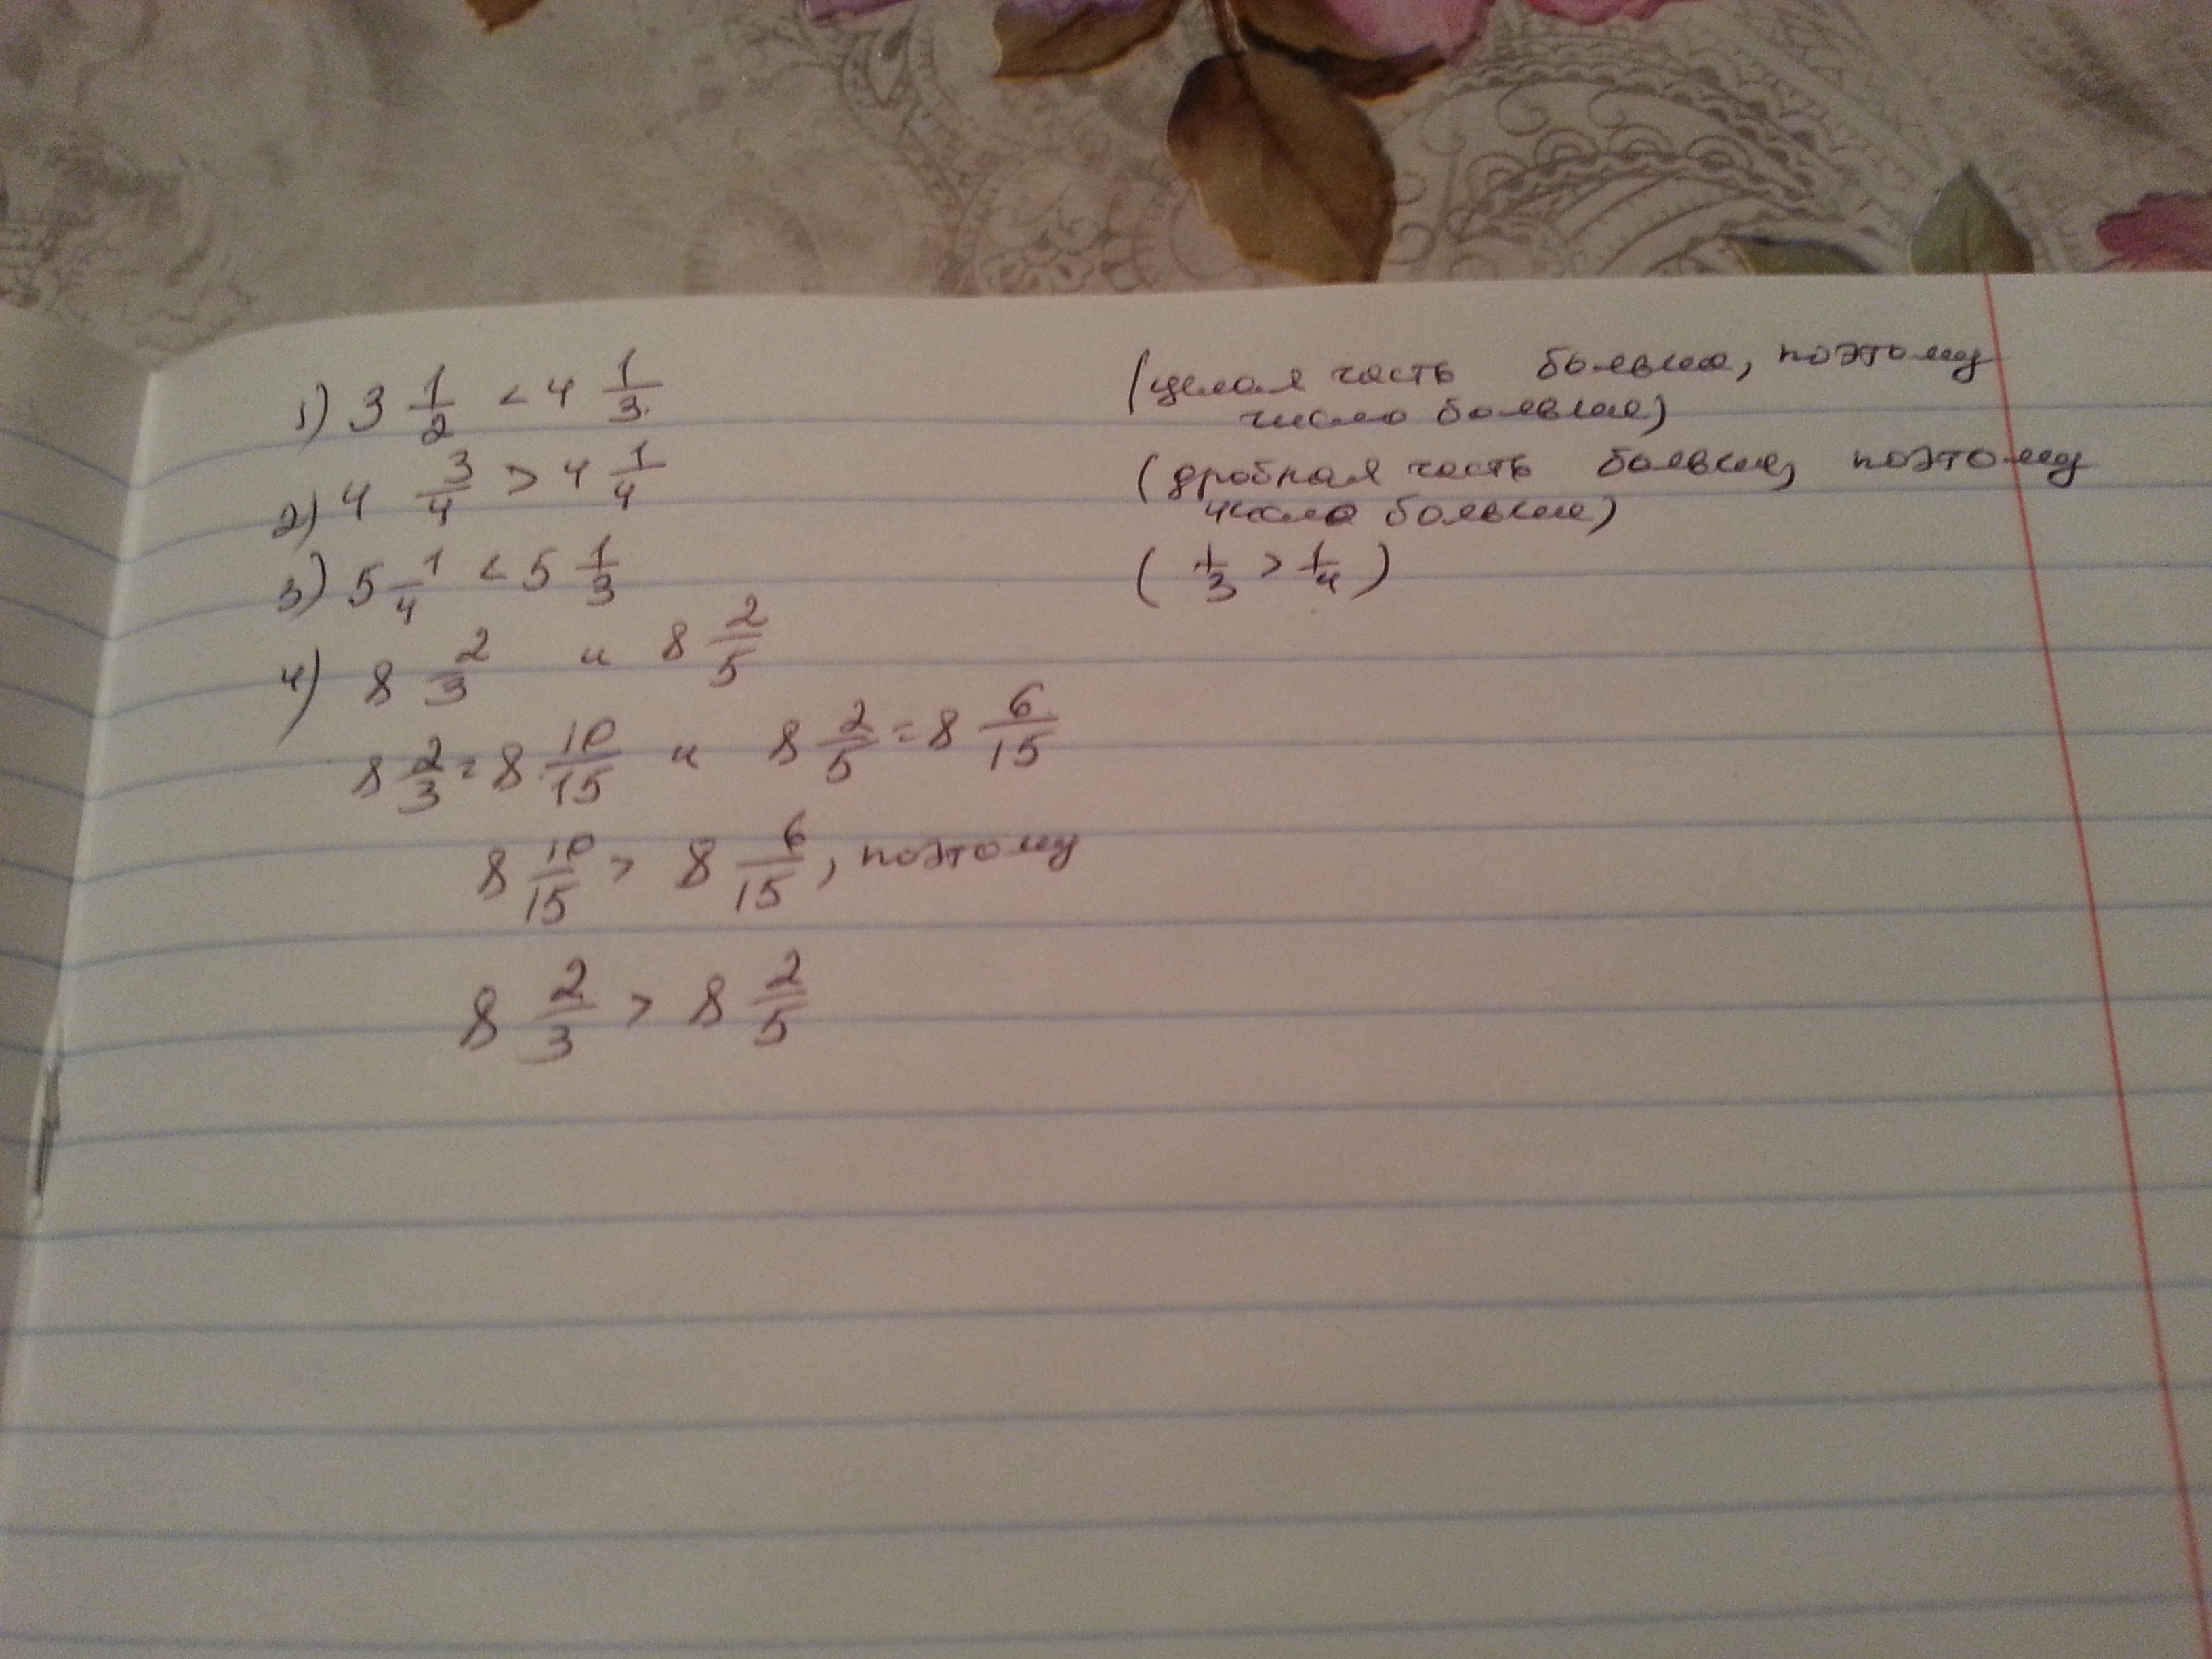 1) 3 1/2 < 4 1/3 (целая часть больше, поэтому
число больше)
2) 4 3/4 > 4 1/4 (дробная часть больше, поэтому
число больше)
3) 5 1/4 < 5 1/3 ( 1/3 > 1/4 )
4) 8 2/3 и 8 2/5
8 2/3 = 8 10/15 и 8 2/5 = 8 6/15
8 10/15 > 8 6/15, поэтому
8 2/3 > 8 2/5